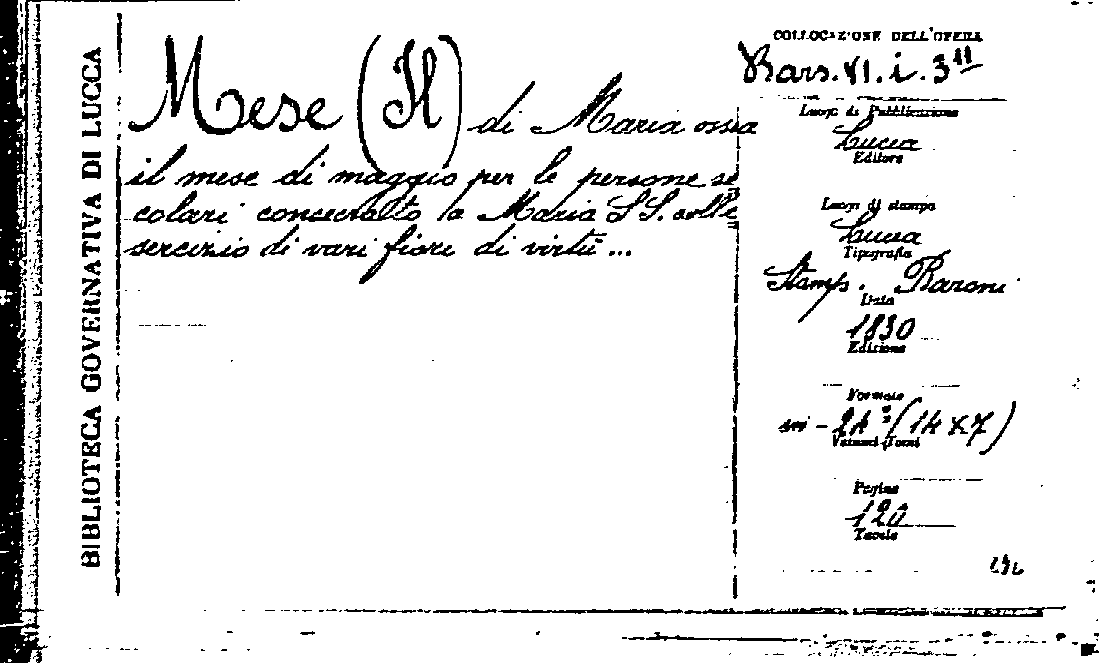 BIBLIOTECA GOVERNATIVA DI LUCCA
Mese (Il) di Maria ossia
il mese di maggio per le persone se
colari consecrato a Maria SS. coll'e
sercizio di vari fiore di virtù ...
COLLOCAZIONE DELL'OPERA
Bars. VI. i. 3
Luogo di Pubblicazione
Lucca
Editore
Luogo di stampa
Lucca
Tipografia
Stamp. Baroni
Data
1830
Edizione
Formato
in-24° (14 x 7)
Volumi-Tomi
Pagine
120
Tavole